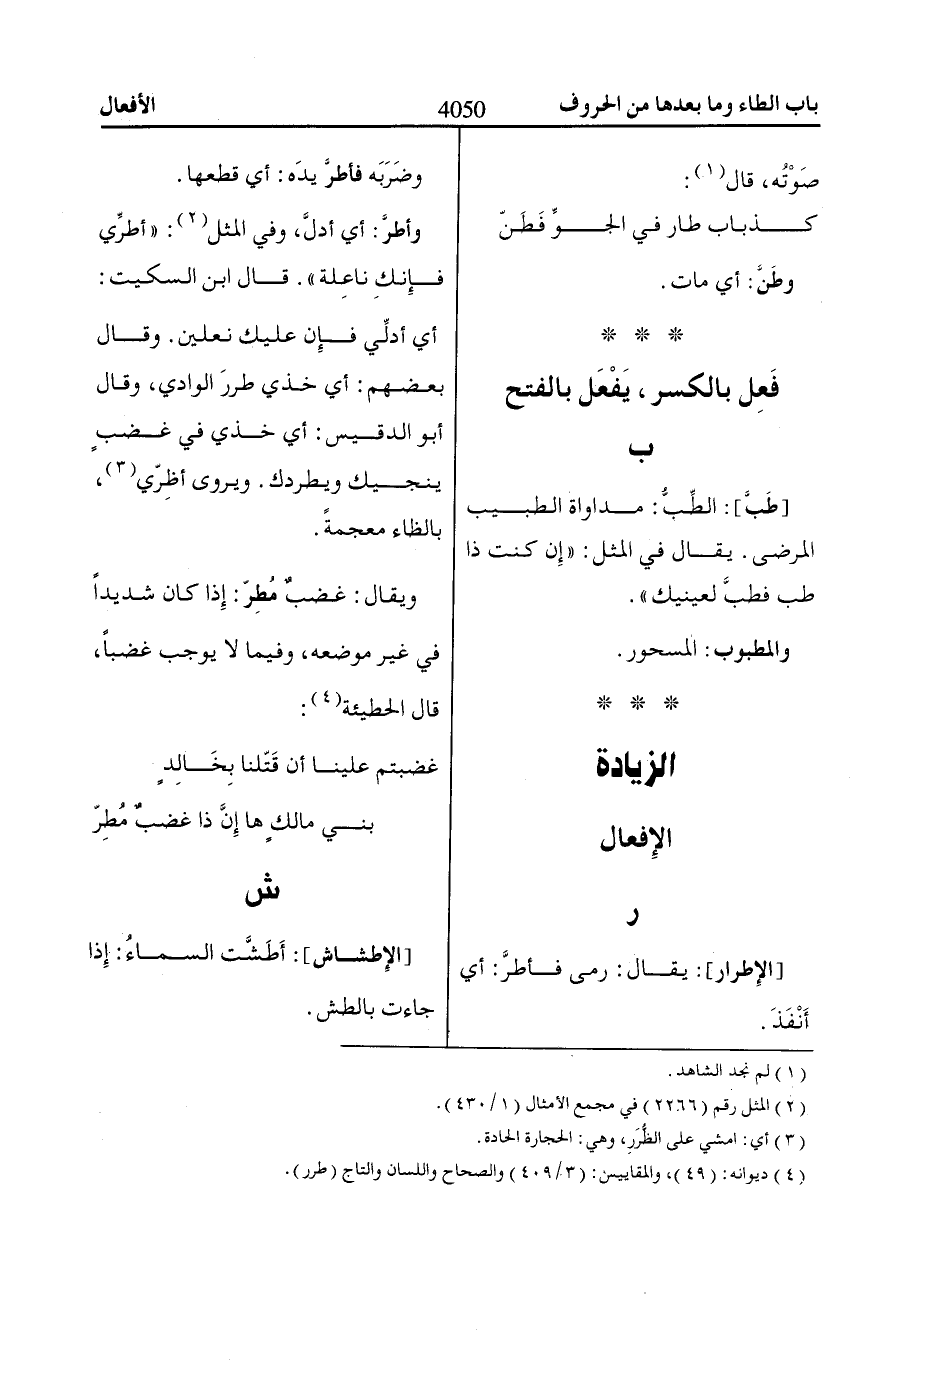 باب الطاء وما بعدها من الحروف 4050 الأفعال
صَوْتُه، قال(١):
كــذباب طار في الجــوِّ فَطَنّ
وطَنَّ: أي مات.
* * *
فَعِل بالكسر ، يَفْعَل بالفتح
ب
[طَبَّ]: الطِّبُّ: مــداواة الطبــيب
المرضى. يقــال في المثل: «إن كنت ذا
طب فطبَّ لعينيك».
والمطبوب: المسحور.
* * *
الزيادة
الإفعال
ر
[الإطرار]: يقــال: رمى فــأطرَّ: أي
أَنْفَذَ.
وضَرَبَه فأطرَّ يدَه: أي قطعها.
وأطرَّ: أي أدلَّ، وفي المثل(٢): «أطرِّي
فــإنك ناعلة». قــال ابن السكيت:
أي أدلِّي فــإن عليك نعلين. وقــال
بعضهم: أي خذي طررَ الوادي، وقال
أبو الدقــيس: أي خــذي في غــضبٍ
ينجــيك ويطردك. ويروى أظرّي(٣)،
بالظاء معجمةً.
ويقال: غضبٌ مُطِرّ: إذا كان شديداً
في غير موضعه، وفيما لا يوجب غضباً،
قال الحطيئة(٤):
غضبتم علينــا أن قَتّلنا بِخَــالدٍ
بنــي مالكٍ ها إنَّ ذا غضبٌ مُطِرّ
ش
[الإطشــاش]: أَطَشَّت الســماءُ: إذا
جاءت بالطش.
(١) لم نجد الشاهد.
(٢) المثل رقم (٢٢٦٦) في مجمع الأمثال (١/ ٤٣٠).
(٣) أي: امشي على الظُّرَرِ، وهي: الحجارة الحادة.
(٤) ديوانه: (٤٩)، والمقاييس: (٣/ ٤٠٩) والصحاح واللسان والتاج (طرر).